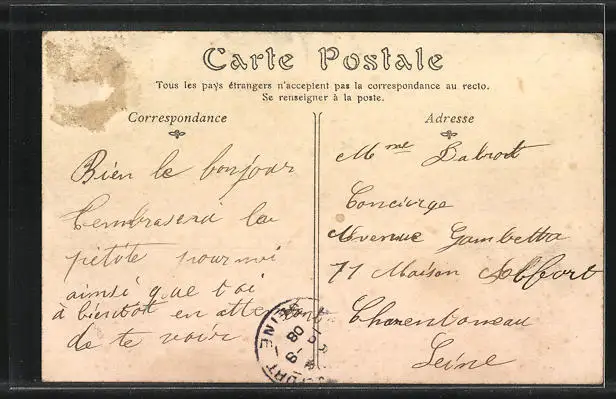 Carte Postale
Tous les pays étrangers n'acceptent pas la correspondance au recto.
Se renseigner à la poste.
Correspondance
Bien le bonjour
la
petite pour moi
ainsi que toi
à bientot en attendant
de te voir
Adresse
Mme Dabrout
Concierge
Avenue Gambetta
71 Maison Alffort
Charentoneau
Seine
SEINE